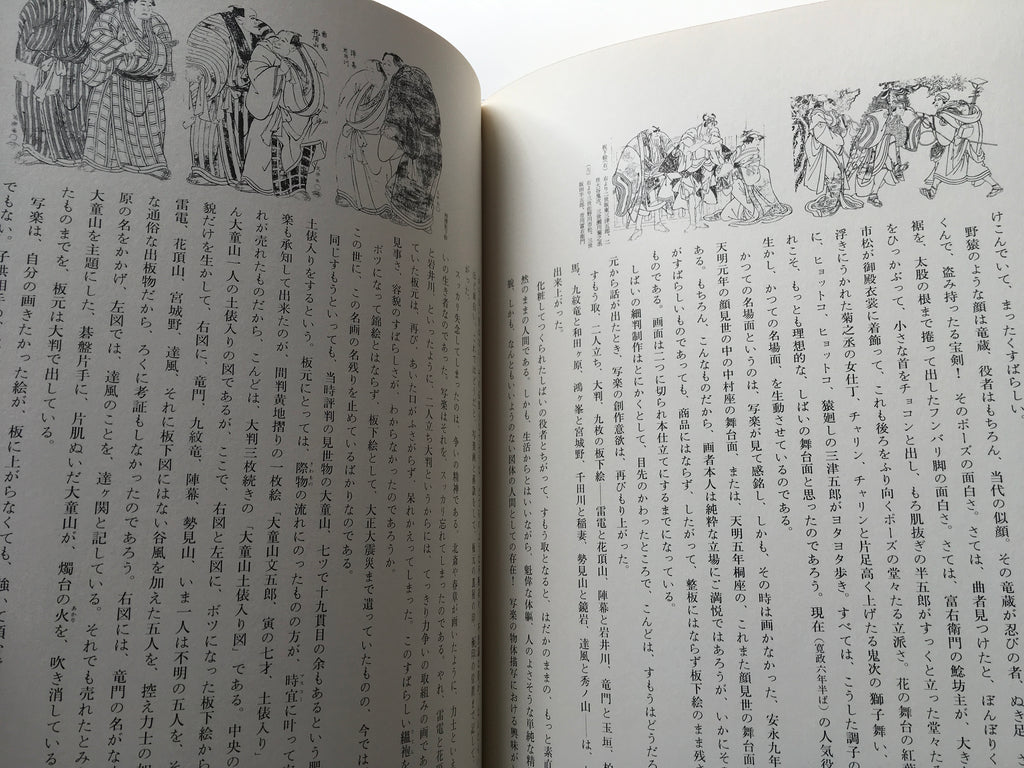 けこんでいて、まったくすばらしい。
野猿のような顔は竜蔵、役者はもちろん、当代の似顔。その竜蔵が忍びの者、ぬき足
くんで、盗み持ったる宝剣！ そのポーズの面白さ。さては、曲者見つけたと、ぼんぼりく
裾を、太股の根まで捲って出したフンバリ脚の面白さ。さては、富右衛門の鯰坊主が、大き
をひっかぶって、小さな首をチョコンと出し、もろ肌抜ぎの半五郎がすっくと立った堂々た
市松が御殿衣裳に着飾って、これも後ろをふり向くポーズの堂々たる立派さ。花の舞台の紅葉
浮きにうかれた菊之丞の女仕丁、チャリン、チャリンと片足高く上げたる鬼次の獅子舞い、
に、ヒョットコ、ヒョットコ、猿廻しの三津五郎がヨタヨタ歩き。すべては、こうした調子の
れこそ、もっとも理想的な、しばいの舞台面と思ったのであろう。現在（寛政六年半ば）の人気役
生かし、かつての名場面、を生動させているのである。
かつての名場面というのは、写楽が見て感銘し、しかも、その時は画かなかった、安永九年
天明元年の顔見世の中の中村座の舞台面、または、天明五年桐座の、これまた顔見世の舞台
る。もちろん、こんなものだから、画者本人は純粋な立場にご満悦ではあろうが、いかにそ
がすばらしいものであっても、商品にはならず、したがって、整板にはならず板下絵のまま残さ
ものである。画面は二つに切られ本仕立てにするまでになって、しまっている。
しばいの細判制作はとにかくとして、目先のかわったところで、こんどは、すもうはどうだろ
元から話が出たとき、写楽の創作意欲は、再びもり上がった。
すもう取、二人立ち、大判、九枚の板下絵――雷電と花頂山、陣幕と岩井川、竜門と玉垣、柏
馬、九紋竜と和田ヶ原、鴻ヶ峯と宮城野、千田川と稲妻、勢見山と鏡岩、達風と秀ノ山――は、
出来上がった。
化粧してつくられたしばいの役者とちがって、すもう取となると、はだかのままの、もっと素直
然のままの人間である。しかも、生活からとはいいながら、魁偉な体軀、人のよさそうな単純な精
戟、しかも、なんともいいようのない図体の人間としての存在！ 写楽の物体描写における興味が
スッカリ失念してしまったのは、争いの精神である。北斎や春草が画いたように、力士といっ
いの生き者なのである。写楽それを、スッカリ忘れてしまってたのである。やれ、雷電と花
と岩井川、といったように、二人立ち大判というからには、てっきり力争いの取組みの画であ
ていた板元は、再び、あいた口がふさがらず、呆れかえってしまった。このすばらしい縕袍を
見事さ、容貌のすばらしさが、わからなかったのであろうか。
ボツになって錦絵とはならず、板下絵として、大正大震災まで遺っていたものの、今では、
この世に、この名画の名残りを止めているばかりなのである。
同じすもうといっても、当時評判の見世物の大童山、七ツで十九貫目の余もあるという肥
土俵入りをするという。板元にとっては、際物の流れにのったものの方が、時宜に叶って
楽も承知して出来たのが、間判黄地摺りの一枚絵、大童山文五郎、寅の七才、土俵入り
れが売れたものだから、こんどは、大判三枚続きの「大童山土俵入り図」である。中央の
ん大童山一人の土俵入りの図であるが、ここで、右図と左図に、ボツになった板下絵から
貌だけを生かして、右図に、竜門、九紋竜、陣幕、勢見山、いま一人は不明の五人を、
雷電、花頂山、宮城野、達風、それに板下図にはない谷風を加えた五人を、控え力士の
な通俗な出板物だから、ろくに考証もしなかったのであろう。右図には、竜門の名がな
原の名をかかげ、左図では、達風のことを、達ヶ関と記している。それでも売れたとみ
大童山を主題にした、碁盤片手に、片肌ぬいだ大童山が、燭台の火を、吹き消している
たものまでを、板元は大判で出している。
写楽は、自分の画きたかった絵が、板に上がらなくても、強いて頂